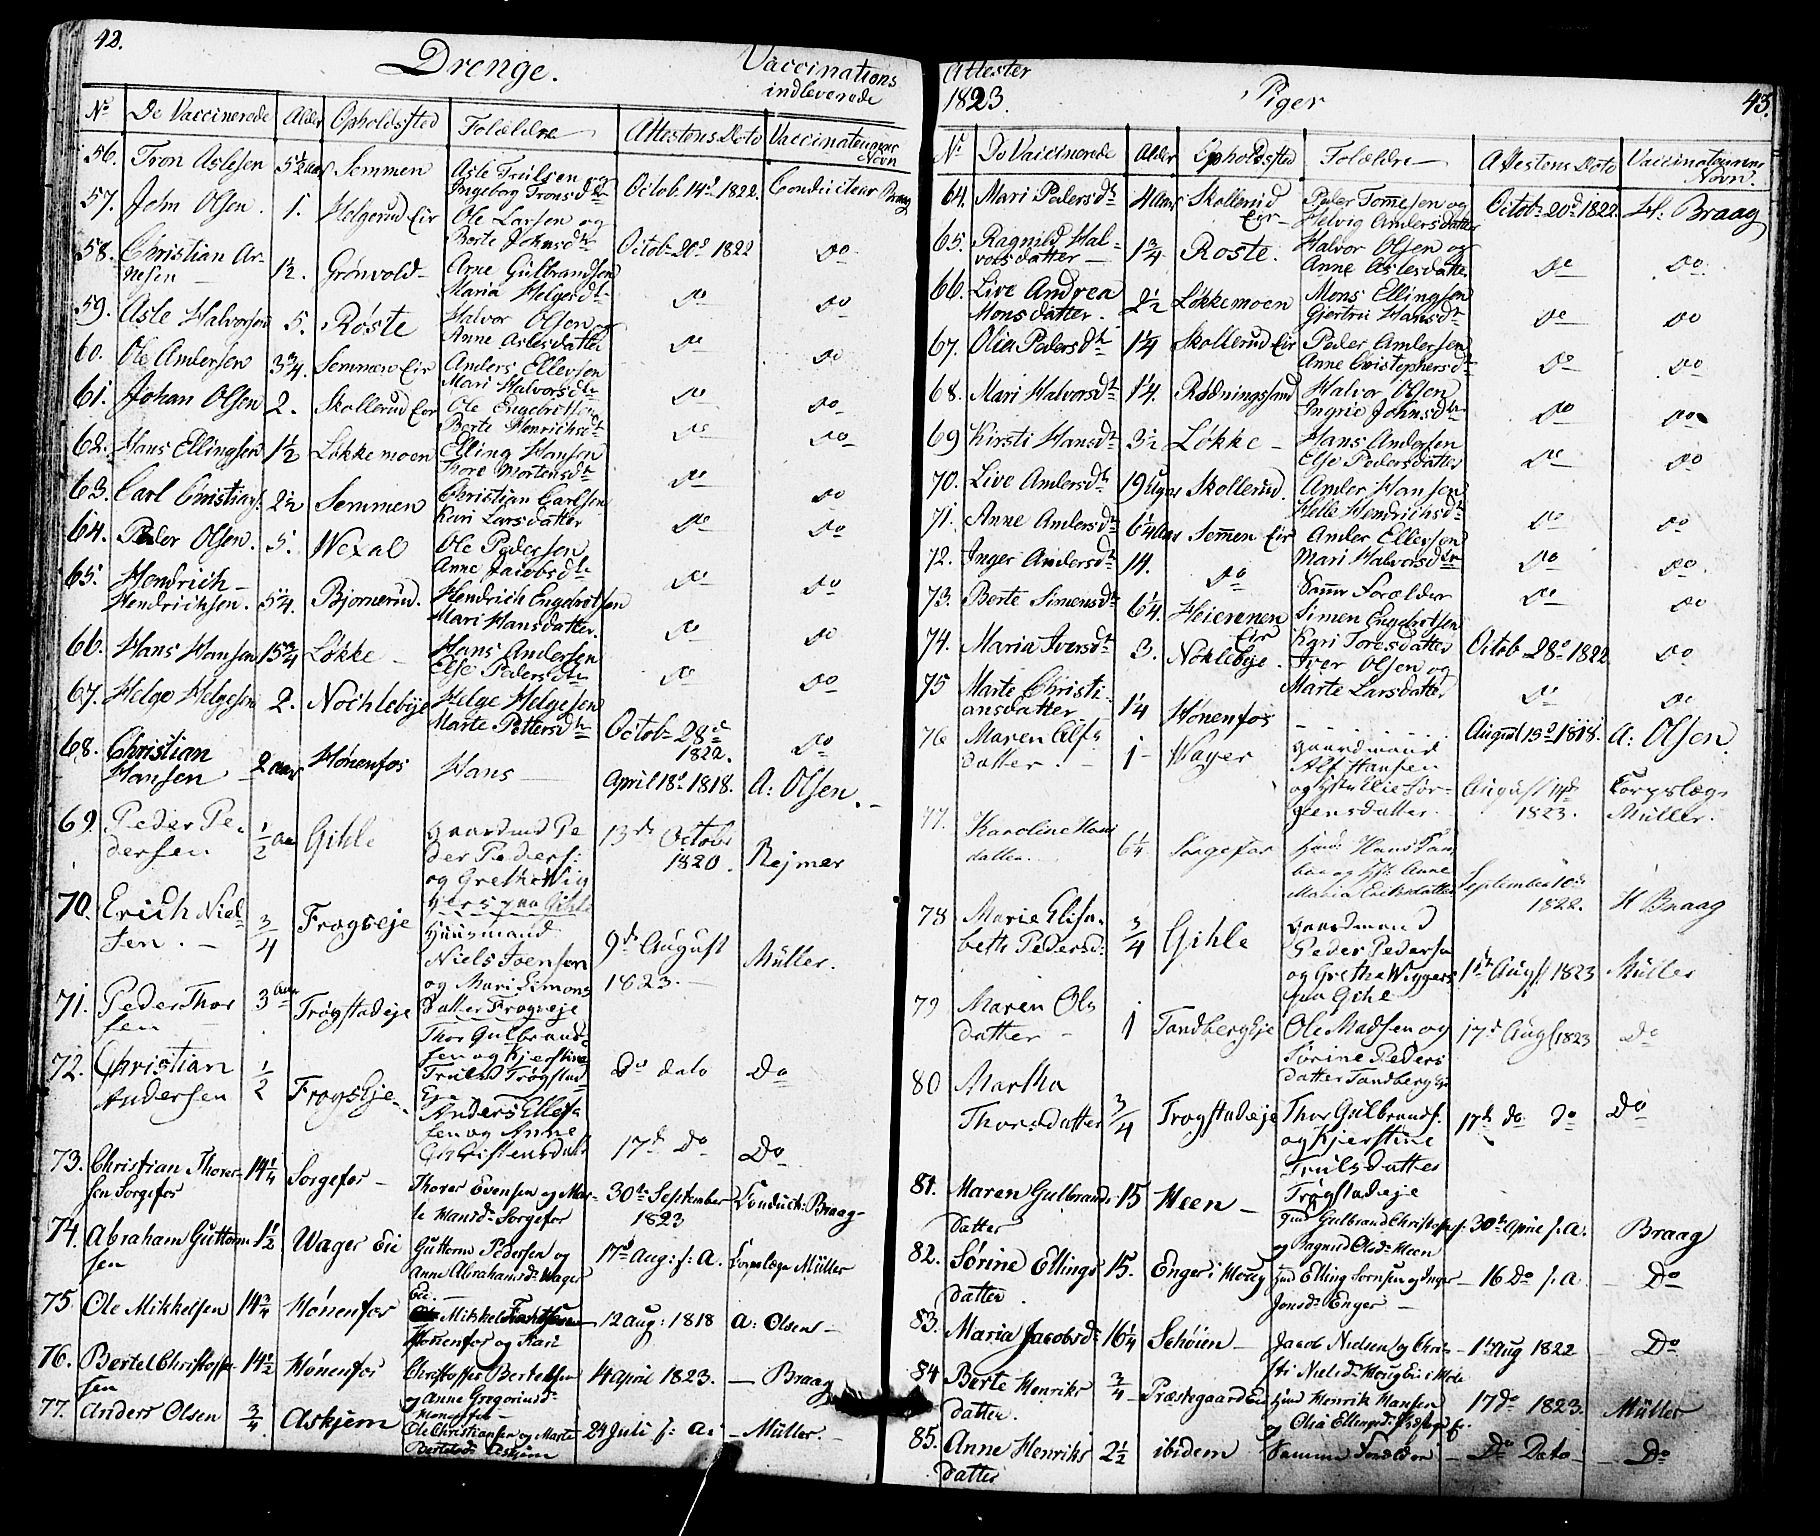 42.
Drenge.
Vaccinations
indleverede
No De Vaccinerede Alder Opholdssted Forældre Attestens Dato Vaccinateurens Navn
56. Tron Aslesen 5½ aar Semmen Asle Trulsen og
Ingeborg Tronsdtr Octob. 14d 1822. Conducteur Braag
57. John Olsen. 1. Helgerud Eir Ole Larsen og
Berte Johnsdtr Octob 20d 1822 Do
58. Christian Ar-
nesen 1½. Grönvold- Arne Gulbrandsen
Maria Helgesdtr Do Do
59. Asle Halvorsen 5. Röste Halvor Olsen og
Anne Aslesdatter Do Do
60. Ole Andersen 3¾. Semmen Eir Anders Ellevsen
Mari Halvorsdtr Do Do
61. Johan Olsen 2. Skollerud Eir Ole Engebritsen
Berte Henrichsdtr Do Do
62. Hans Ellingsen 1½ Løkkemoen Elling Hansen
Thore Mortensdtr Do Do
63. Carl Cristians. 2½ Semmen Christian Carlsen
Kari Larsdatter Do Do
64. Peder Olsen. 5. Wexal Ole Pedersen
Anne Jacobsdtr Do Do
65. Hendrich-
Hendrichsen. 5¼. Bjørnerud. Hendrich Engebretsen
Mari Hansdatter. Do Do
66. Hans Hansen 15¾ Løkke- Hans Andersen
Else Pedersdtr Do Do
67. Helge Helgesen 2. Nochlebye Helge Helgesen
Marte Pettersdtr Octob 28d
1822. Do
68. Christian
Hansen 2 aar Hønenfos Hans April 18d 1818. A: Olsen.
69. Peder Pe-
dersen ½ aar Gihle Gaardmd Pe
der Peders:
og Grethe Wig
gers paa Gihle 13de Octobr
1820. Rejmer
70. Erich Niel-
sen. ¾ Frogseje Huusmand
Niels Ivensen
og Mari Simons
datter Frogneje 9de August
1823. Müller.
71. Peder Thor
sen 3 aar Trøgstadeje Thor Gulbrand
sen og Kjerstine
Truls Trøgstad
Eje Do dato Do
72. Christian
Andersen ½ Frogs Eje. Anders Ellefs
sen og Anne
Christensdatt 17de Do Do
73. Christian Thorer
sen Sorgefos 14¼ Sorgefos Thorer Evensen og Mar-
te Hansd. Sorgefos 30te September
1823 Conduct: Braag
74. Abraham Guttorm
sen 1½ Wager Eie Guttorm Pedersen og
Anne Abrahamsd. Wager
Eie. 17de Aug: f: A. Corpslæge Müller
75. Ole Mikkelsen 14¾ Hónenfos Mikkel
Hönenfos og Kari 12 Aug: 1818 A: Olsen
76. Bertel Christoffer
sen 14½ Hónenfos Christoffer Bertelsen
og Anne Gregoriusd.
Honenfos 14 April 1823. Braag
77. Anders Olsen ¾. Askjem Ole Christiansen og Marte
Bertelsd. Askjem 24 Juli f: A: Müller.
Attester
1823.
Piger
43.
No De Vaccinerede Alder Opholdssted Forældre Attestens Dato Vaccinateurens Navn.
64. Mari Pedersdtr 4 aar Skollerud
Eir Peder Tomesen og
Helvig Andersdatter Octob 20d 1822. H: Braag
65. Ragnild Hal-
vorsdatter 1¾ Roste. Halvor Olsen og
Anne Aslesdatter Do Do
66. Live Andrea
Monsdatter. 2½ Løkkemoen Mons Ellingsen
Gjertru Hansdtr Do Do
67. Olia Pedersdtr 1¼ Skollerud Eir Peder Andersen
Anne Cristophersdtr Do Do
68. Mari Halvorsdtr 1¼. Rødningssand Halvor Olsen
Ingrie Johnsdtr Do Do
69 Kirsti Hansdtr 3½ Løkke- Hans Andersen
Else Pedersdatter Do Do
70. Live Andersdtr 19 Uger Skollerud. Ander Hansen
Helle Hendrichsdtr Do Do
71. Anne Andersdtr 6¼ aar Semen Eir Ander Ellevsen
Mari Halvorsdtr Do Do
72. Inger Andersdtr 14. Do Samme Forældre Do Do
73. Berte Simensdtr 6¼. Heierenen
Eir Simen Engebretsen
Kari Toresdatter Octob 28d 1822. Do
74. Maria Iversdtr 3. Noklebye. Iver Olsen og
Marte Larsdatter Do Do
75 Marte Christi-
ansdatter 1¼ Hønenfos August 13d 1818. A: Olsen.
76 Maren Alfs
datter. 1 Wager Gaardmand
Alf Hansen
og Hst: Ellie Jör-
gensdatter. August 17de
1823. Corpslæge
Müller.
77. Karoline Hans
datter. 6¼ Sorgefos Huusm: Hans
og Hst: Anne
Maria Eriksdatter September 10de
1822. H Braag
78 Marie Elisa-
beth Pedersd: ¾ Gihle Gaardmand
Peder Pedersen
og Grethe Wiggers
paa Gihle 1ste Augst. 1823 Müller
79 Maren Ols
datter 1 Tandberg Eje Ole Madsen og
Sörine Peders
datter Tandberg Eje 17de Augst 1823 Do
80 Martha
Thorsdatter ¾ Trogstadeje Thor Gulbrands.
og Kjerstine
Trulsdatter
Trögstadeje 17de do do Do
81. Maren Gulbrands
datter 15 Heen Huusmd Gulbrand Christophers.
og Ragnild Olsd. Heen 30te April f.A. Braag
82. Sörine Ellings
datter. 15. Enger i Houg Huusmd Elling Sornsen og Inger
Jonsd. Enger 16 Do f.A Do
83. Maria Jacobsd: 16¼ Schöien Jacob Nielsen og Chri-
sti Nielsd. Houg Eie i Hole 1 Aug 1822 Do
84 Berte Henriks
datter. ¾ Præstegaard Eie Huusmd Henrik Hansen
og Olia Ellingsd. 17de 1823. Müller
85. Anne Henriks
datter 2½ ibidem Samme Forældre Do Dato Do